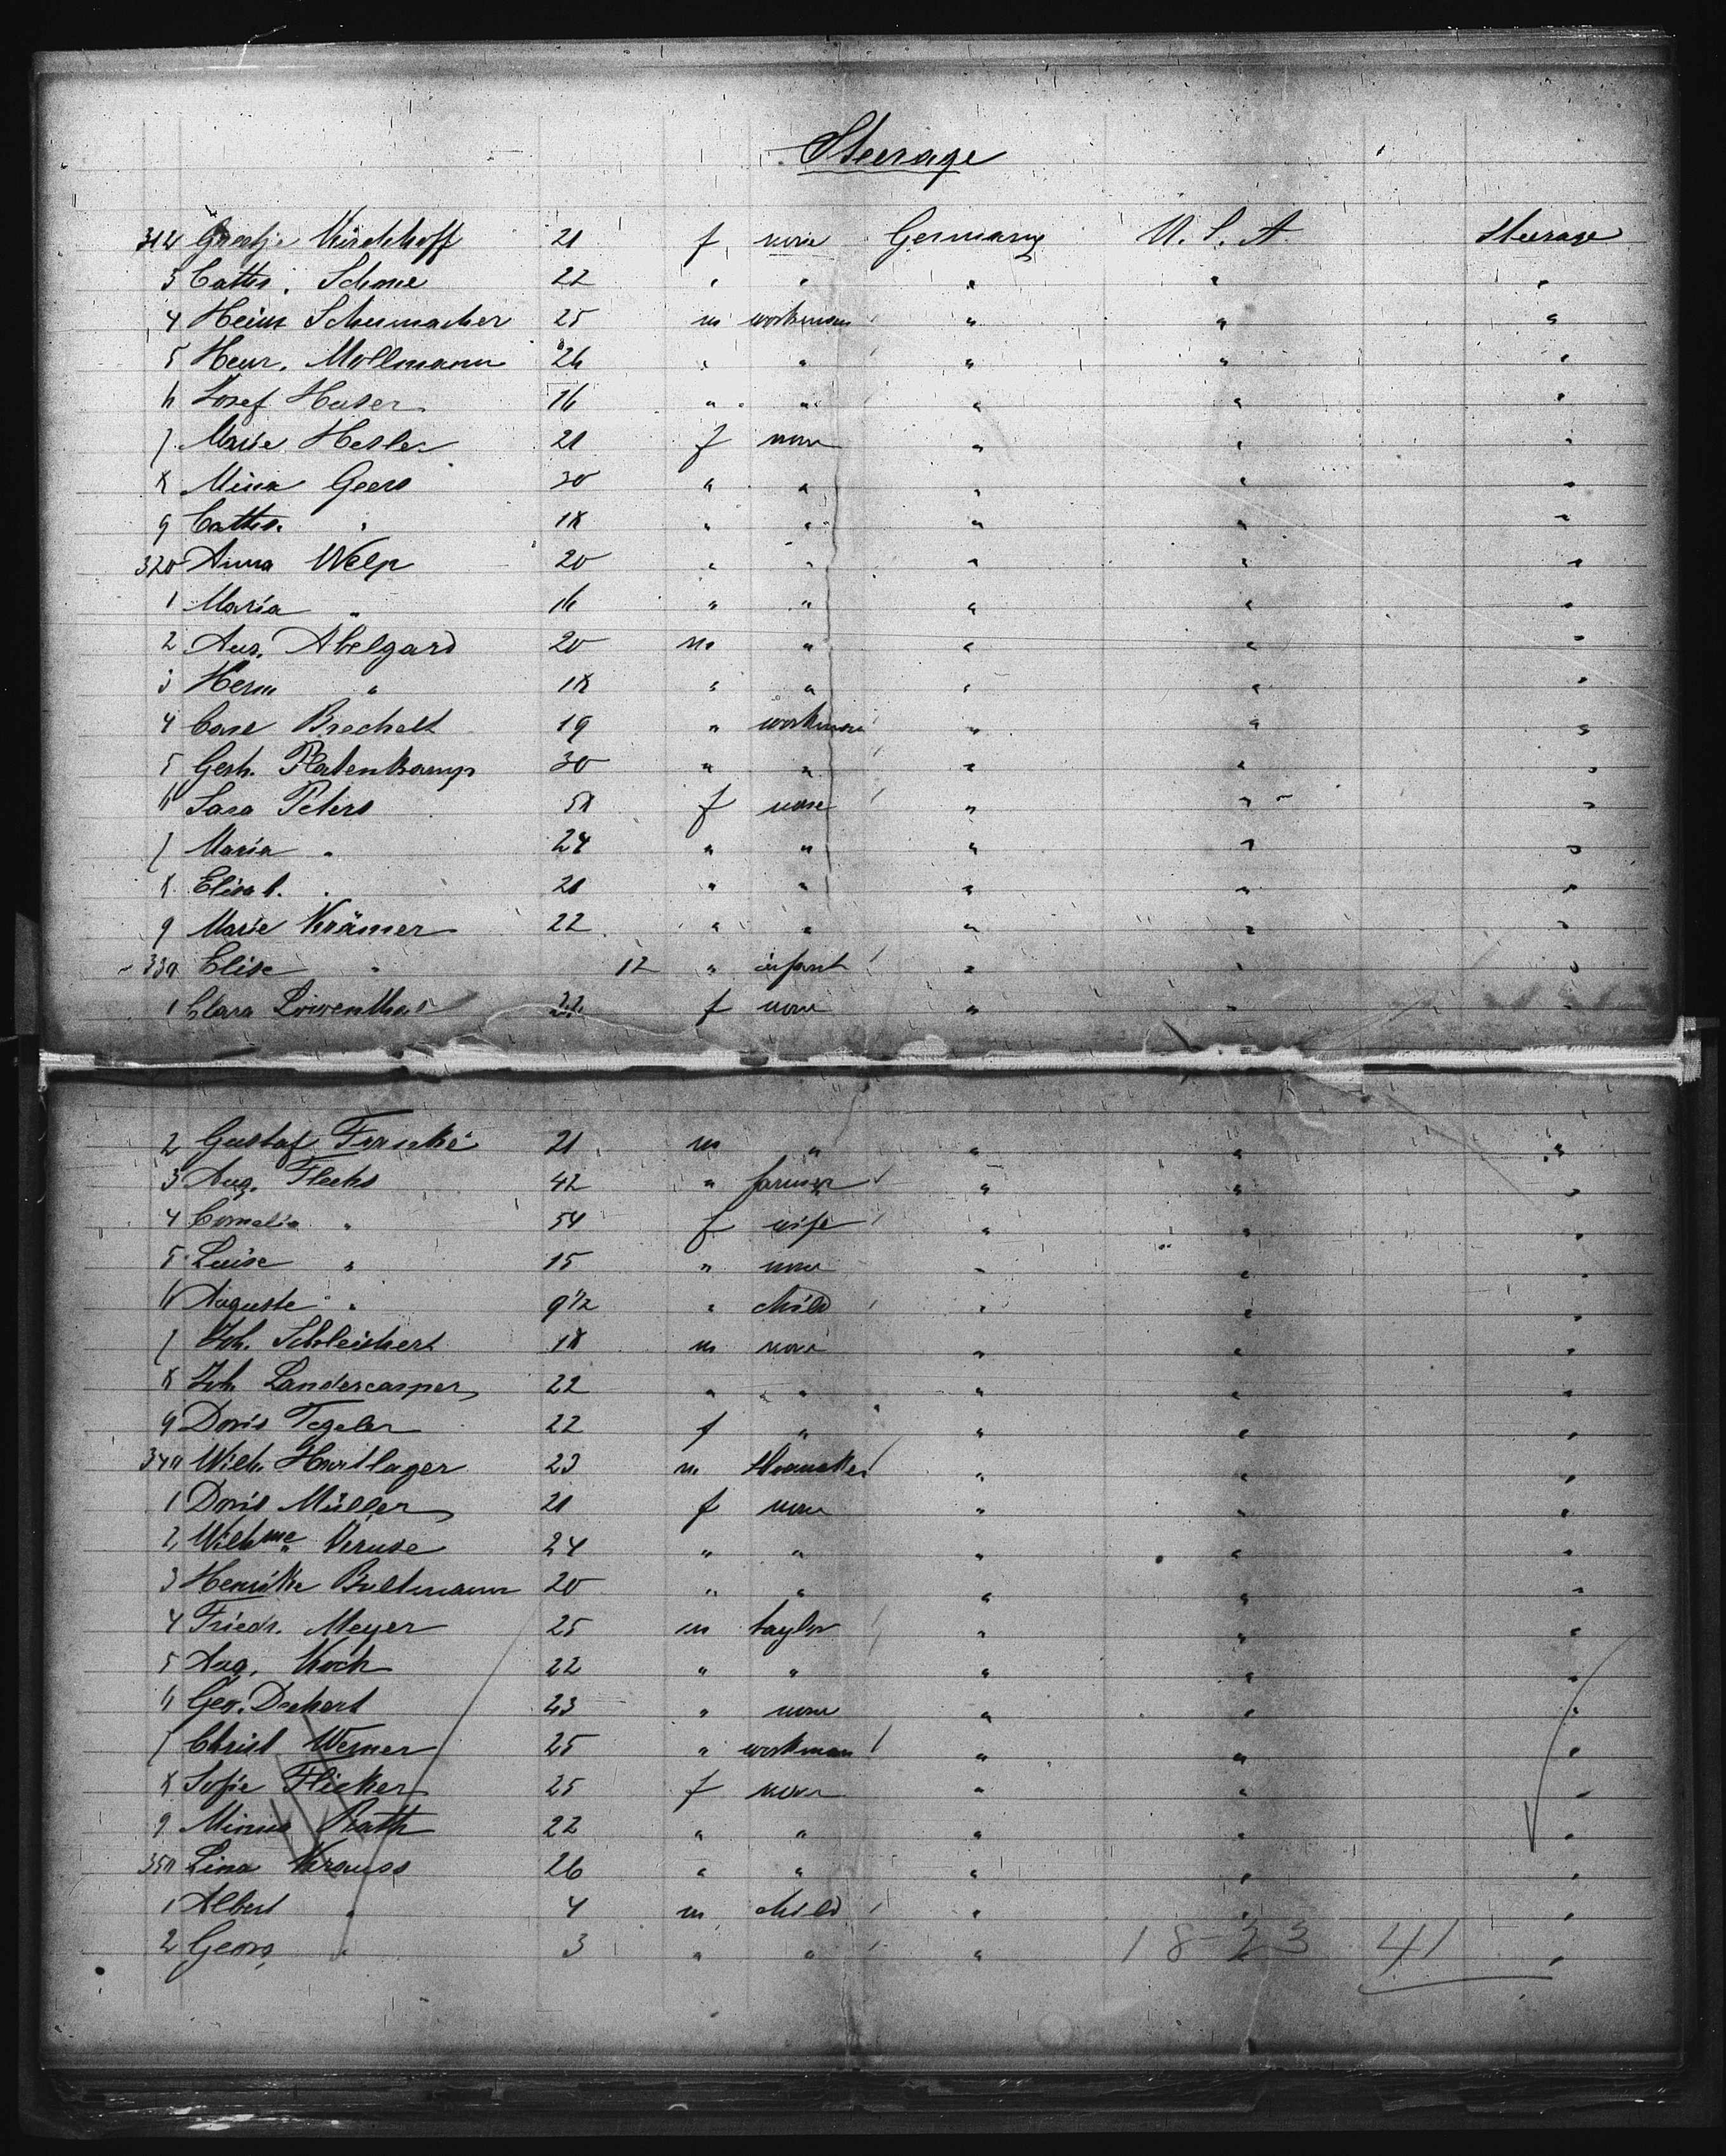 Steerage
312 Grentje Kirchhoff 21 f none Germany U. S. A. Steerage
3 Cath. Schone 22 " " " " "
4 Heinr Schumacher 25 m workman " " "
5 Heinr. Mollmann 26 " " " " "
6 Josef Huser 16 " " " " "
7 Marie Hesler 21 f none " " "
8 Mina Geers 30 " " " " "
9 Cath. " 18 " " " " "
320 Anna Welp 20 " " " " "
1 Maria " 16 " " " " "
2 Aug. Abelgard 20 m " " " "
3 Herm " 18 " " " " "
4 Carl Brechelt 19 " workman " " "
5 Gerh. Platenkamp 30 " " " " "
6 Sara Peters 58 f none " " "
7 Maria " 24 " " " " "
8 Elisab. " 21 " " " " "
9 Marie Krämer 22 " " " " "
330 Elise " 12 " infant " " "
1 Clara Löwenthal 22 f none " " "
2 Gustaf 21 m " " " "
3 Aug. Flechs 42 " farmer " " "
4 Cornelia " 54 f wife " " "
5 Luise " 15 " none " " "
6 Auguste " 9 1/2 " child " " "
7 Joh. Schleichert 18 m none " " "
8 Joh. Landercasper 22 " " " " "
9 Doris Tegeler 22 f " " " "
340 Wilh. Hartlager 23 m " " "
1 Doris Müller 21 f none " " "
2 Wilhme Kruse 24 " " " " "
3 Henrike Bultmann 20 " " " " "
4 Friedr. Meyer 25 m taylor " " "
5 Aug. Koch 22 " " " " "
6 Geo. Dechert 23 " none " " "
7 Christ Werner 25 " workman " " "
8 Sofie Flicker 25 f none " " "
9 Minna Rath 22 " " " " "
350 Lina Krauss 26 " " " " "
1 Albert " 4 m child " " "
2 Georg " 3 " " " "
18-23 41